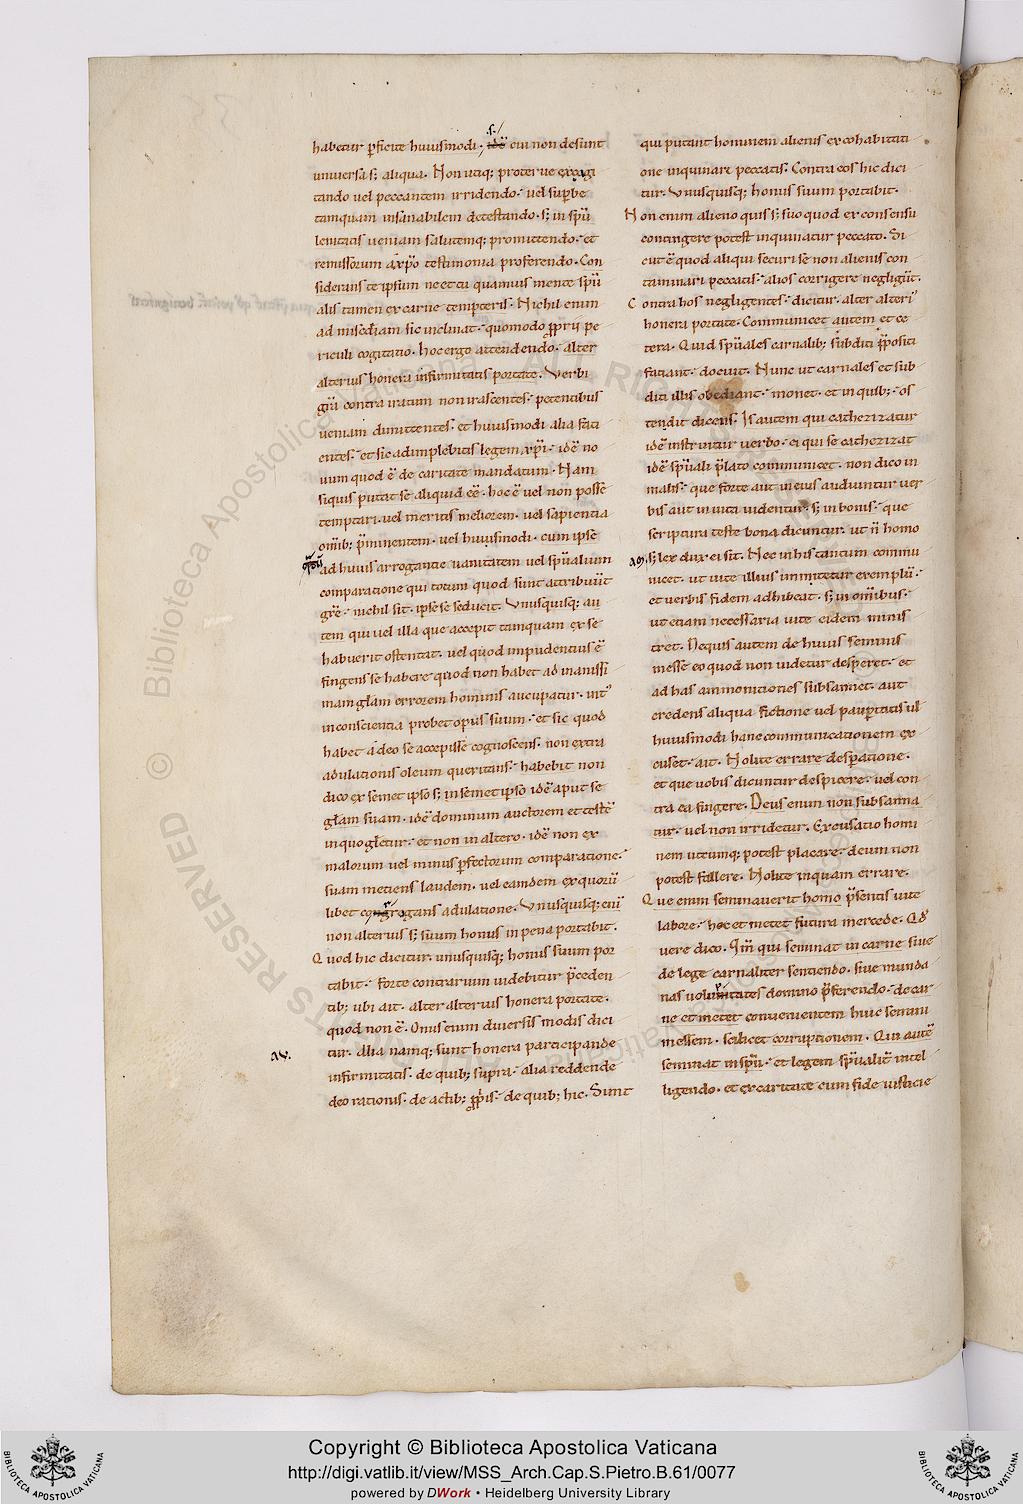 habetur ꝑficite huiusmodi· idē cui non desunt
uniuersa sꝫ aliqua. Non utiqꝫ proterue exagi
tando uel peccantem irridendo· uel suꝑbe
tamquam insanabilem detestando· sꝫ in spū
lenitatis ueniam salutemqꝫ promittendo· et
remissorum a xp̄o testimonia proferendo. Con
siderans te ipsum ne et tu quamuis mente spū
alis tamen ex carne tempteris. Nichil enim
ad mis̄cdiam sic inclinat· quomodo ꝓprii pe
riculi cogitatio. hoc ergo attendendo· alter
alterius honera infirmitatis portate. Verbi
grā contra iratum non irascentes· petentibus
ueniam dimittentes· et huiusmodi alia faci
entes· et sic adimplebitis legem xp̄i· idē no
uum quod ē de caritate mandatum. Nam
siquis putat se aliquid eē· hoc ē uel non posse
temptari· uel meritis meliorem· uel sapientia
om̄ibꝫ p̄minentem· uel huiusmodi· cum ipse
ad huius arrogantie uanitatem uel spūalium
comparatione qui totum quod sunt attribuūt
grē· nichil sit· ipse se seducit. Vnusquisqꝫ au
tem qui uel illa que accepit tamquam ex se
habuerit ostentat· uel quod impudentius ē
fingens se habere quod non habet ad inanissi
mam glām errorem hominis aucupatur· int᷒
in conscientia probet opus suum· et sic quod
habet a deo se accepisse cognoscens· non extra
adulationis oleum queritans· habebit non
dico ex semet ipso sꝫ in semet ipso idē aput se
glām suam· idē dominum auctorem et testē
in quo glētur· et non in altero· idē non ex
malorum uel minus ꝑfectorum comparatione·
suam metiens laudem· uel eamdem ex quorū
libet adulatione. Vnusquisqꝫ enī
non alterius sꝫ suum honus in pena portabit.
Quod hic dicitur· unusquisqꝫ honus suum por
tabit· forte contrarium uidebitur p̄ceden
tibꝫ ubi ait· alter alterius honera portate·
quod non ē. Onus enim diuersis modis dici
av.
tur. Alia namqꝫ sunt honera participande
infirmitatis· de quibꝫ supra· alia reddende
deo rationis· de actibꝫ ꝓpis· de quibꝫ hic. Sunt
qui putant hominem alienis ex cohabitati
one inquinari peccatis. Contra eos hic dici
tur. Vnusquisqꝫ honus suum portabit.
Non enim alieno quis sꝫ suo quod ex consensu
contingere potest inquinatur peccato. Si
cut ē quod aliqui securi se non alienis con
taminari peccatis· alios corrigere negligūt.
Contra hos negligentes· dicitur· alter alteri᷒
honera portate. Communicet autem et ce
tera. Quid spūales carnalibꝫ subditi p̄positi
faciant· docuit. Nunc ut carnales et sub
diti illis obediant· monet· et in quibꝫ· os
tendit dicens. Is autem qui catherizatur
idē instruitur uerbo· ei qui se catherizat
idē spūali p̄lato communicet· non dico in
malis· que forte aut in eius audiuntur uer
bis aut in uita uidentur· sꝫ in bonis· que
scriptura teste bona dicuntur· ut n̄ homo
sꝫ lex dux ei sit. Nec in his tantum commu
nicet· ut uite illius immitetur exemplū·
et uerbis fidem adhibeat· sꝫ in om̄ibus·
ut etiam necessaria uite eidem minis
tret. Nequis autem de huius seminis
messe eo quod non uidetur desperet· et
ad has ammonitiones subsannet· aut
credens aliqua fictione uel pauꝑtatis ul̄
huiusmodi hanc communicationem ex
cuset· ait. Nolite errare desperatione·
et que uobis dicuntur despicere· uel con
tra ea fingere. Deus enim non subsanna
tur· uel non irridetur. Excusatio homi
nem utcumqꝫ potest placare· deum non
potest fallere. Nolite inquam errare.
Que enim seminauerit homo p̄sentis uite
labore· hoc et metet futura mercede. Qd̄
uere dico. Qm̄ qui seminat in carne siue
de lege carnaliter sentiendo· siue munda
nas uoluntates domino p̄ferendo· de car
ne et metet conuenientem huic semini
messem· scilicet corruptionem. Qui autē
seminat in spū· et legem spūalit̄ intel
ligendo· et ex caritate cum fide iusticie
© Biblioteca Apostolica Vaticana ALL RIGHTS RESERVED
Copyright © Biblioteca Apostolica Vaticana
http://digi.vatlib.it/view/MSS_Arch.Cap.S.Pietro.B.61/0077
powered by DWork • Heidelberg University Library
BIBLIOTECA APOSTOLICA VATICANA
BIBLIOTECA APOSTOLICA VATICANA